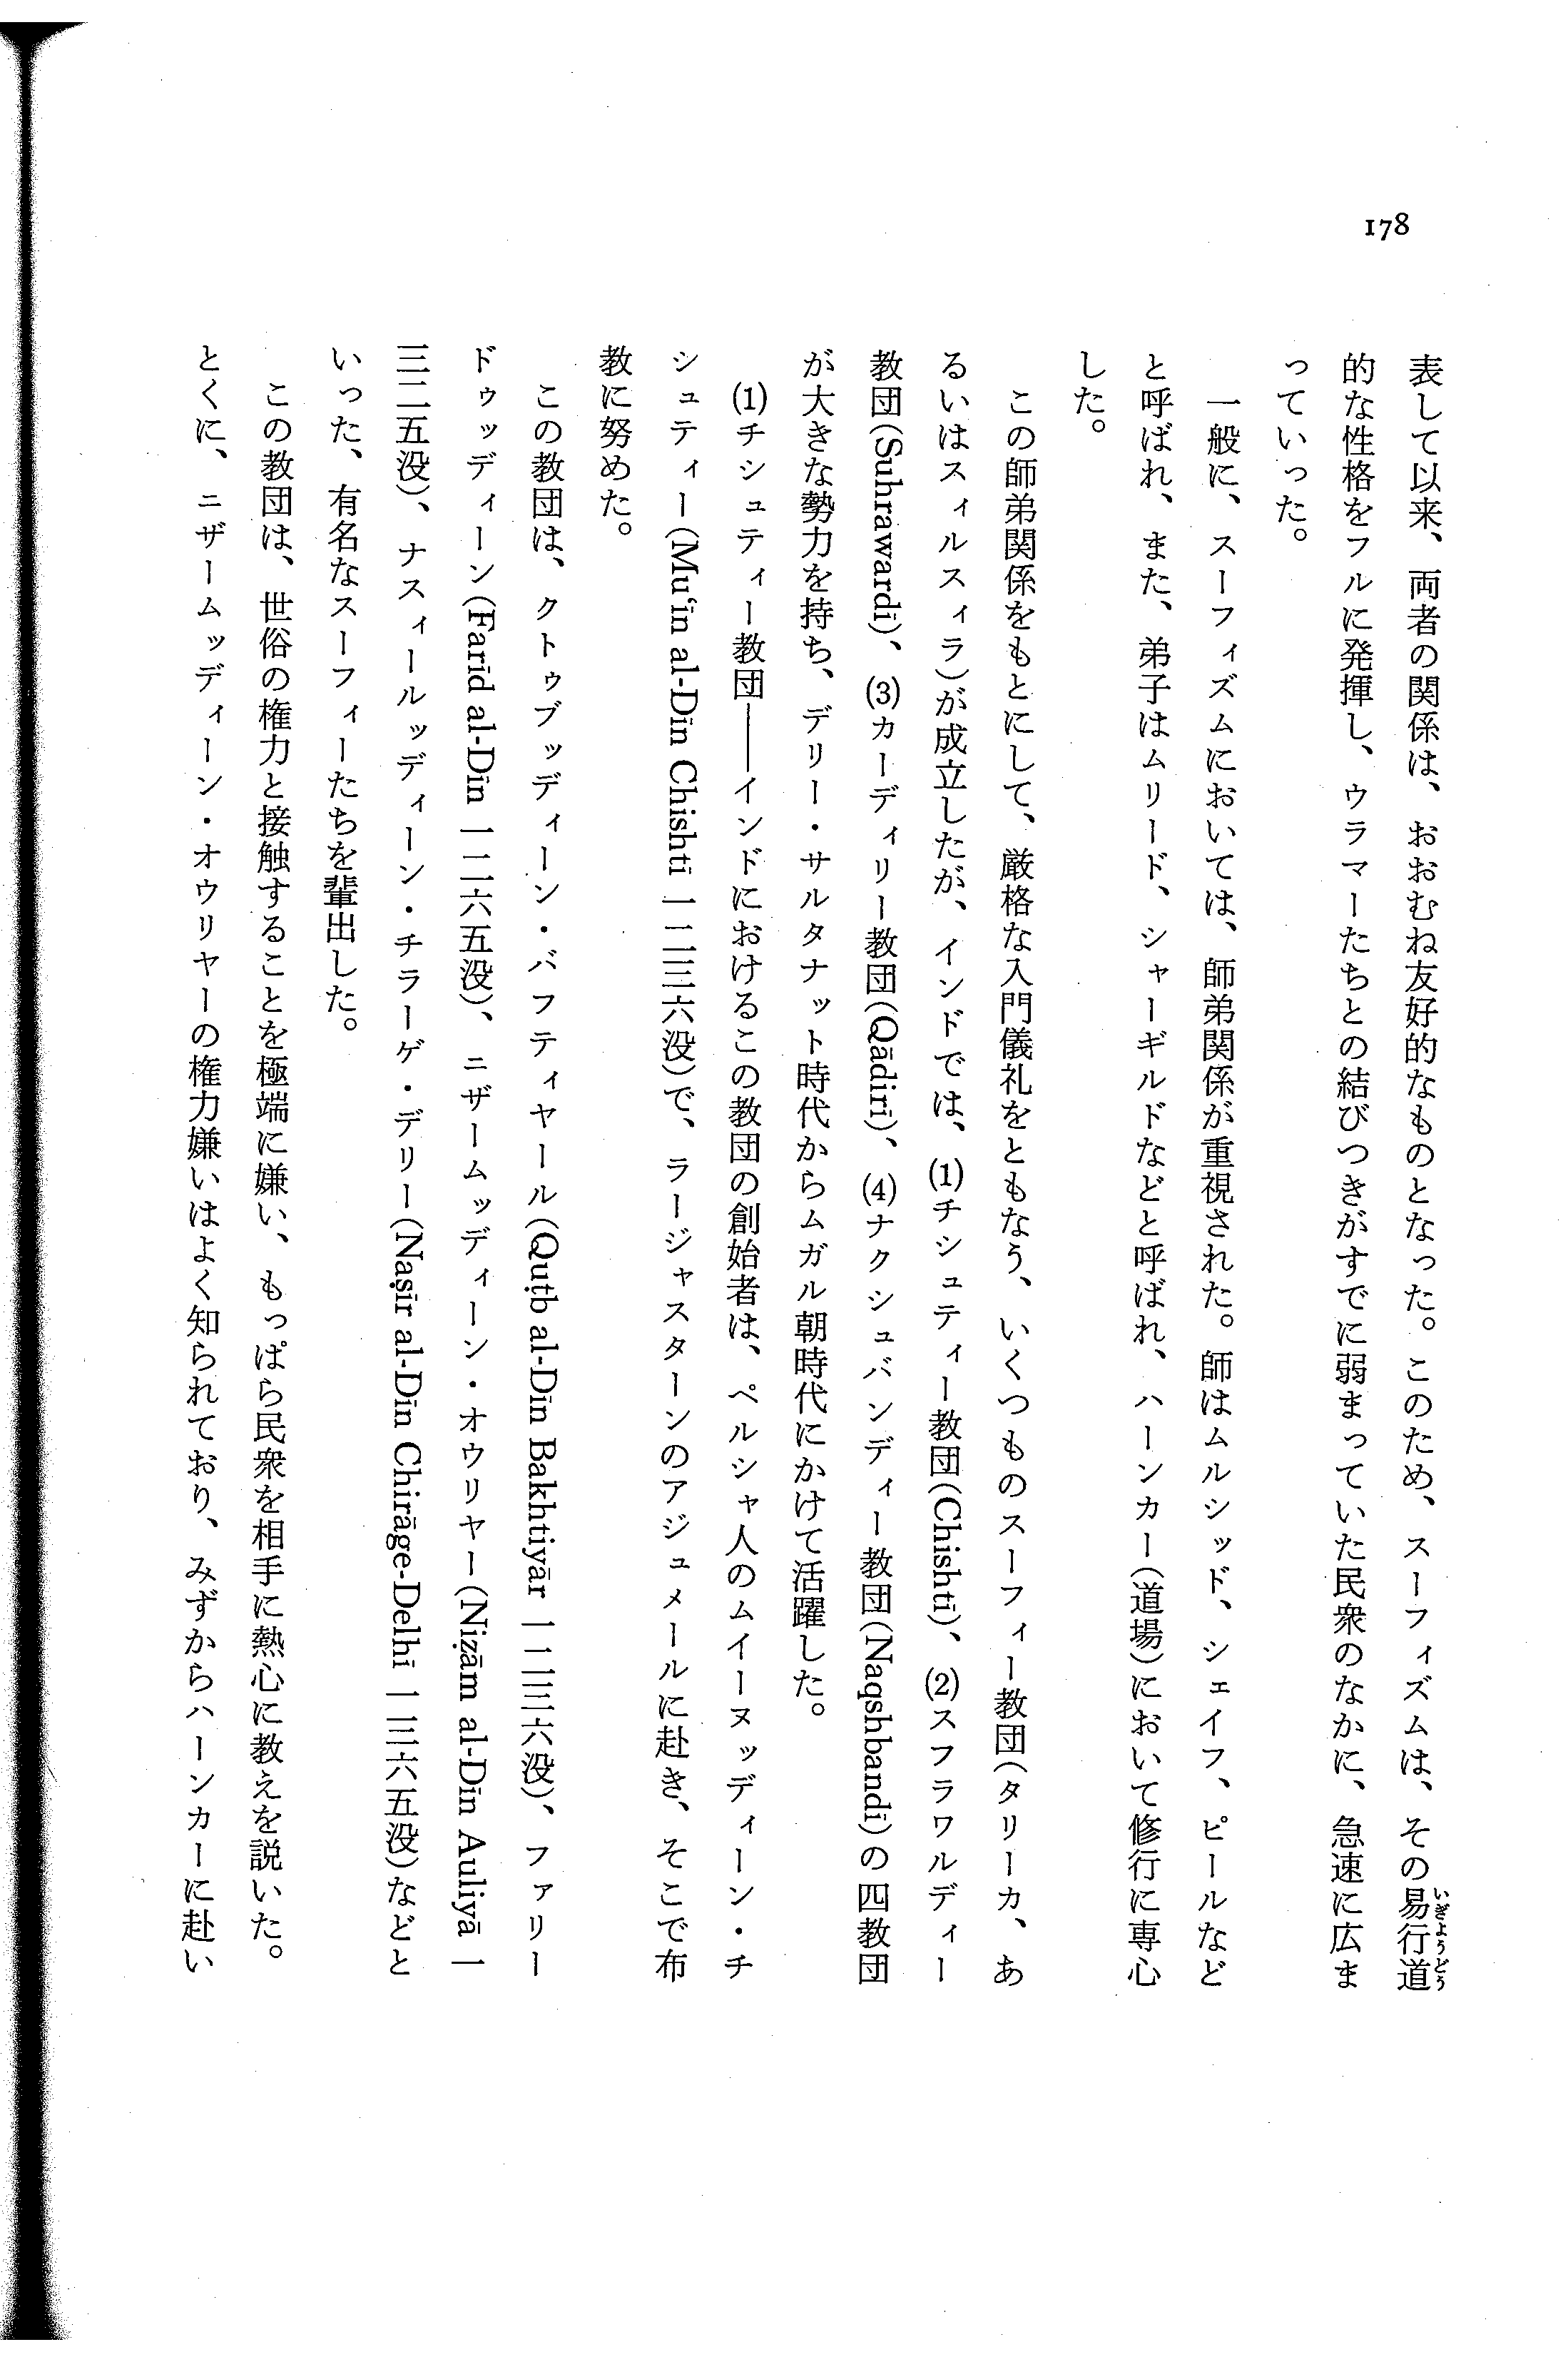 178
表して以来、両者の関係は、おおむね友好的なものとなった。このため、スーフィズムは、その易行道
いぎようどう
的な性格をフルに発揮し、ウラマーたちとの結びつきがすでに弱まっていた民衆のなかに、急速に広ま
っていった。
一般に、スーフィズムにおいては、師弟関係が重視された。師はムルシッド、シェイフ、ピールなど
と呼ばれ、また、弟子はムリード、シャーギルドなどと呼ばれ、ハーンカー(道場)において修行に専心
した。
この師弟関係をもとにして、厳格な入門儀礼をともなう、いくつものスーフィー教団(タリーカ、あ
るいはスィルスィラ)が成立したが、インドでは、(1)チシュティー教団(Chishtī)、(2)スフラワルディー
教団(Suhrawardī)、(3)カーディリー教団(Qādirī)、(4)ナクシュバンディー教団(Naqshbandī)の四教団
が大きな勢力を持ち、デリー・サルタナット時代からムガル朝時代にかけて活躍した。
(1)チシュティー教団――インドにおけるこの教団の創始者は、ペルシャ人のムイーヌッディーン・チ
シュティー(Mu‘īn al-Dīn Chishtī 一二三六没)で、ラージャスターンのアジュメールに赴き、そこで布
教に努めた。
この教団は、クトゥブッディーン・バフティヤール(Quṭb al-Dīn Bakhtiyār 一二三六没)、ファリー
ドゥッディーン(Farīd al-Dīn 一二六五没)、ニザームッディーン・オウリヤー(Niẓām al-Dīn Auliyā 一
三二五没)、ナスィールッディーン・チラーゲ・デリー(Naṣīr al-Dīn Chirāge-Delhī 一三六五没)などと
いった、有名なスーフィーたちを輩出した。
この教団は、世俗の権力と接触することを極端に嫌い、もっぱら民衆を相手に熱心に教えを説いた。
とくに、ニザームッディーン・オウリヤーの権力嫌いはよく知られており、みずからハーンカーに赴い